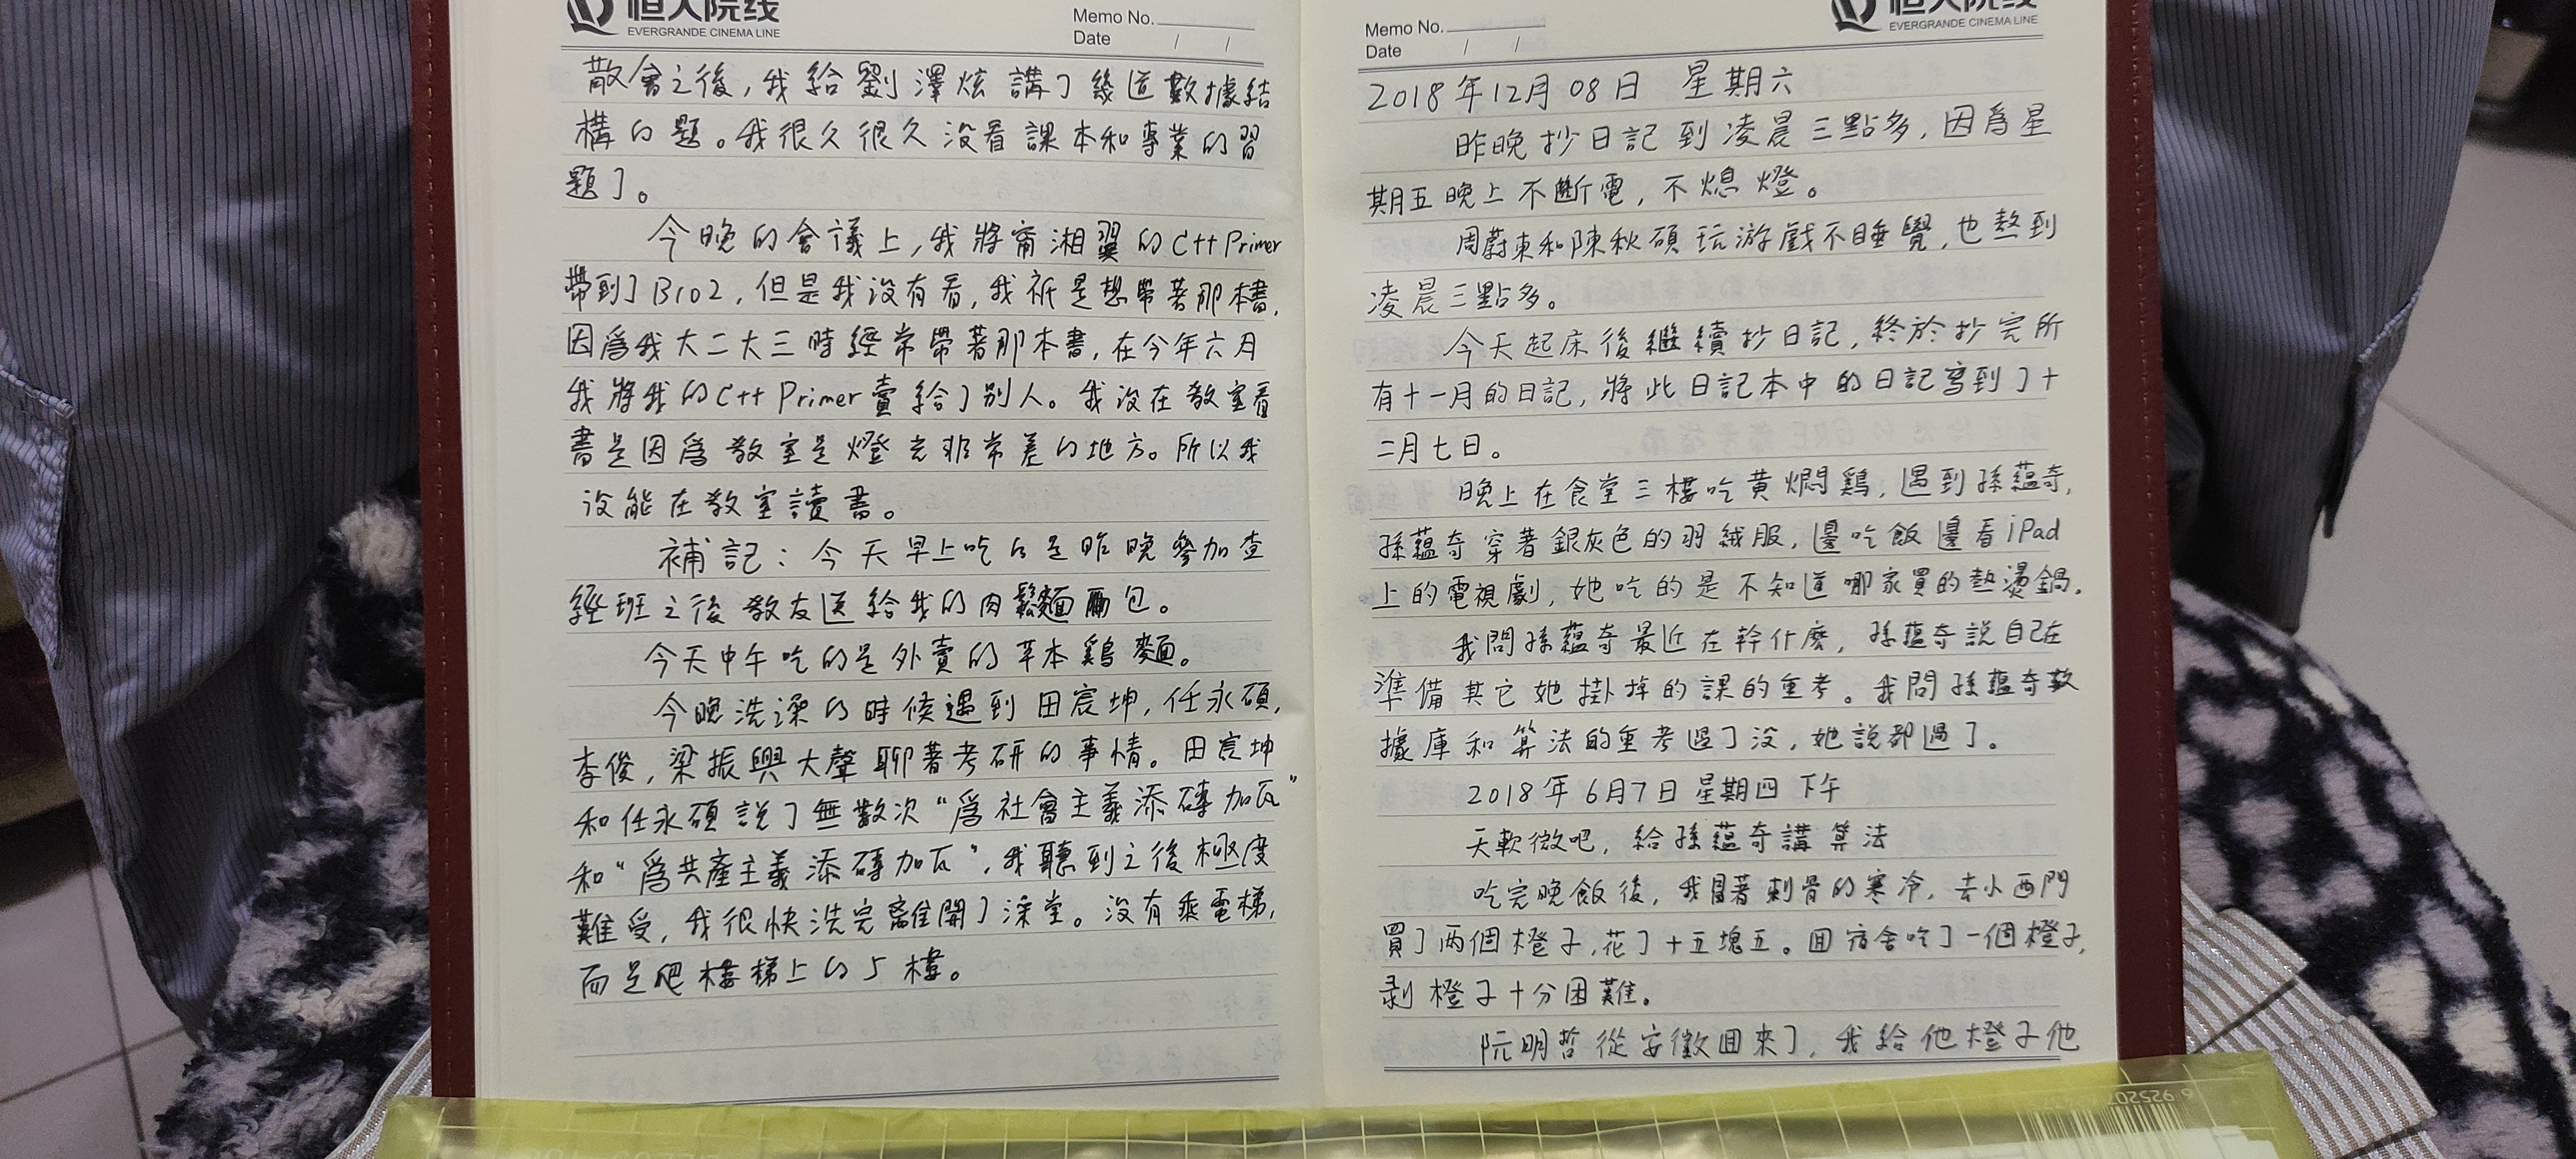 恒大院线
EVERGRANDE CINEMA LINE
Memo No.
Date / /
散會之後,我給劉澤炫講了幾道數據結
構的題。我很久很久沒看課本和專業的習
題了。
今晚的會議上,我將甯湘翼的C++ Primer
帶到了B102,但是我沒有看,我祇是想帶著那本書,
因爲我大二大三時經常帶著那本書,在今年六月
我將我的C++ Primer賣給了別人。我沒在教室看
書是因爲教室是燈光非常差的地方。所以我
沒能在教室讀書。
補記:今天早上吃的是昨晚參加查
經班之後教友送給我的肉鬆麵包。
今天中午吃的是外賣的草本鷄麵。
今晚洗澡的時候遇到田宸坤,任永碩,
李俊,梁振興大聲聊著考研的事情。田宸坤
和任永碩說了無數次“爲社會主義添磚加瓦”
和“爲共產主義添磚加瓦”,我聽到之後極度
難受,我很快洗完離開了澡堂。沒有乘電梯,
而是爬樓梯上的5樓。
恒大院线
EVERGRANDE CINEMA LINE
Memo No.
Date / /
2018年12月08日 星期六
昨晚抄日記到凌晨三點多,因爲星
期五晚上不斷電,不熄燈。
周蔚東和陳秋碩玩游戲不睡覺,也熬到
凌晨三點多。
今天起床後繼續抄日記,終於抄完所
有十一月的日記,將此日記本中的日記寫到了十
二月七日。
晚上在食堂三樓吃黄燜鷄,遇到孫蘊奇,
孫蘊奇穿著銀灰色的羽絨服,邊吃飯邊看iPad
上的電視劇,她吃的是不知道哪家買的熱燙鍋。
我問孫蘊奇最近在幹什麽,孫蘊奇說自己在
準備其它她掛掉的課的重考。我問孫蘊奇數
據庫和算法的重考過了沒,她說都過了。
2018年6月7日星期四 下午
天軟微吧,給孫蘊奇講算法
吃完晚飯後,我冒著刺骨的寒冷,去小西門
買了两個橙子,花了十五塊五。回宿舍吃了一個橙子,
剥橙子十分困難。
阮明哲從安徽回來了,我給他橙子他